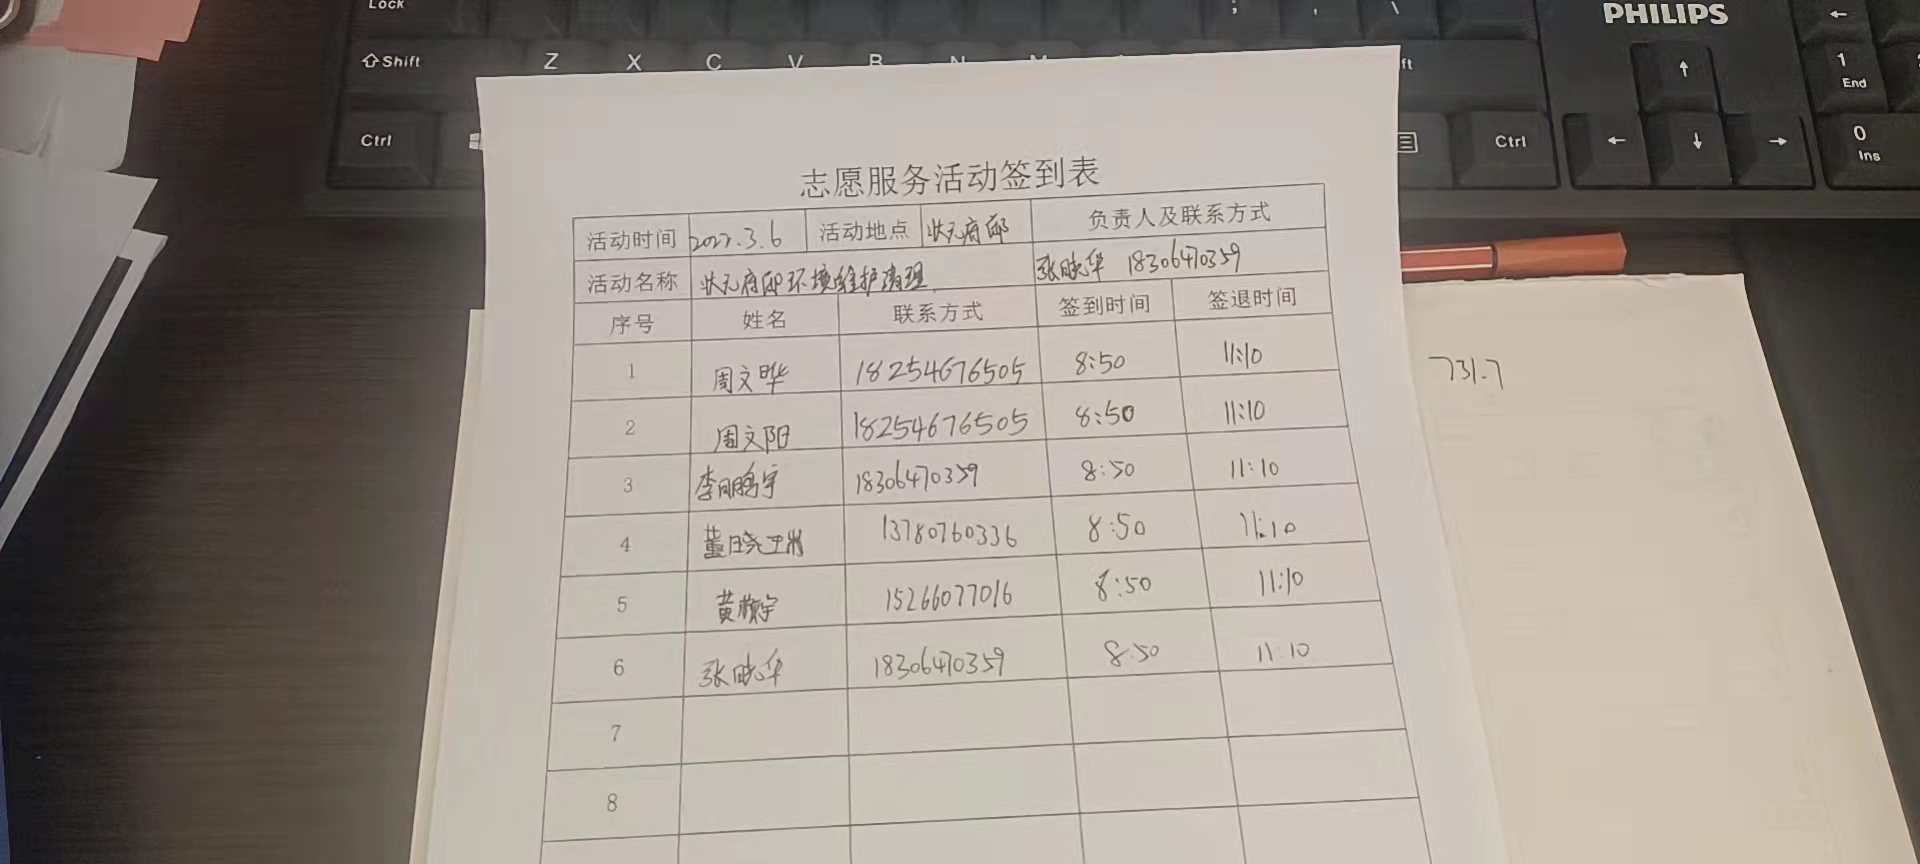 Lock
PHILIPS
Shift Z X C V B N M
1 End
Ctrl Ctrl 0 Ins
志愿服务活动签到表
活动时间 2022.3.6 活动地点 状元府邸 负责人及联系方式
活动名称 状元府邸环境维护清理 张晓华 18306470359
序号 姓名 联系方式 签到时间 签退时间
1 周文晔 18254676505 8:50 11:10
2 周文阳 18254676505 8:50 11:10
3 李鹏宇 18306470359 8:50 11:10
4 董晓 13780760336 8:50 11:10
5 黄 宇 15266077016 8:50 11:10
6 张晓华 18306470359 8:50 11:10
7
8
731.7